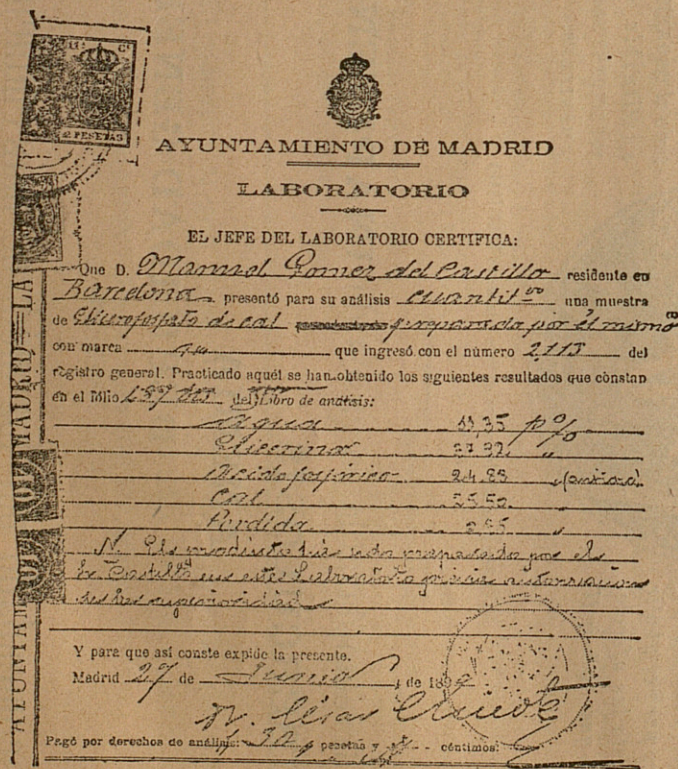 2 PESETAS
AYUNTAMIENTO DE MADRID
LABORATORIO
EL JEFE DEL LABORATORIO CERTIFICA:
Que D. Manuel Gomez del Castillo residente en
Barcelona presentó para su análisis cuantit.vo una muestra
de Glicerofosfato de cal preparada por él mismo
con marca que ingresó con el número 2,115 del
registro general. Practicado aquél se han obtenido los siguientes resultados que constan
en el fólio del libro de análisis:
Agua p%
Glicerina "
Acido fosfórico 24.88 "
Cal 25.50
Perdida "
N. preparado por el
Sr. Castillo en este Laboratorio
superioridad
Y para que así conste expide la presente.
Madrid 27 de Junio de 189
Pagó por derechos de análisis: 30 pesetas y céntimos.
AYUNTAMIENTO DE MADRID LA